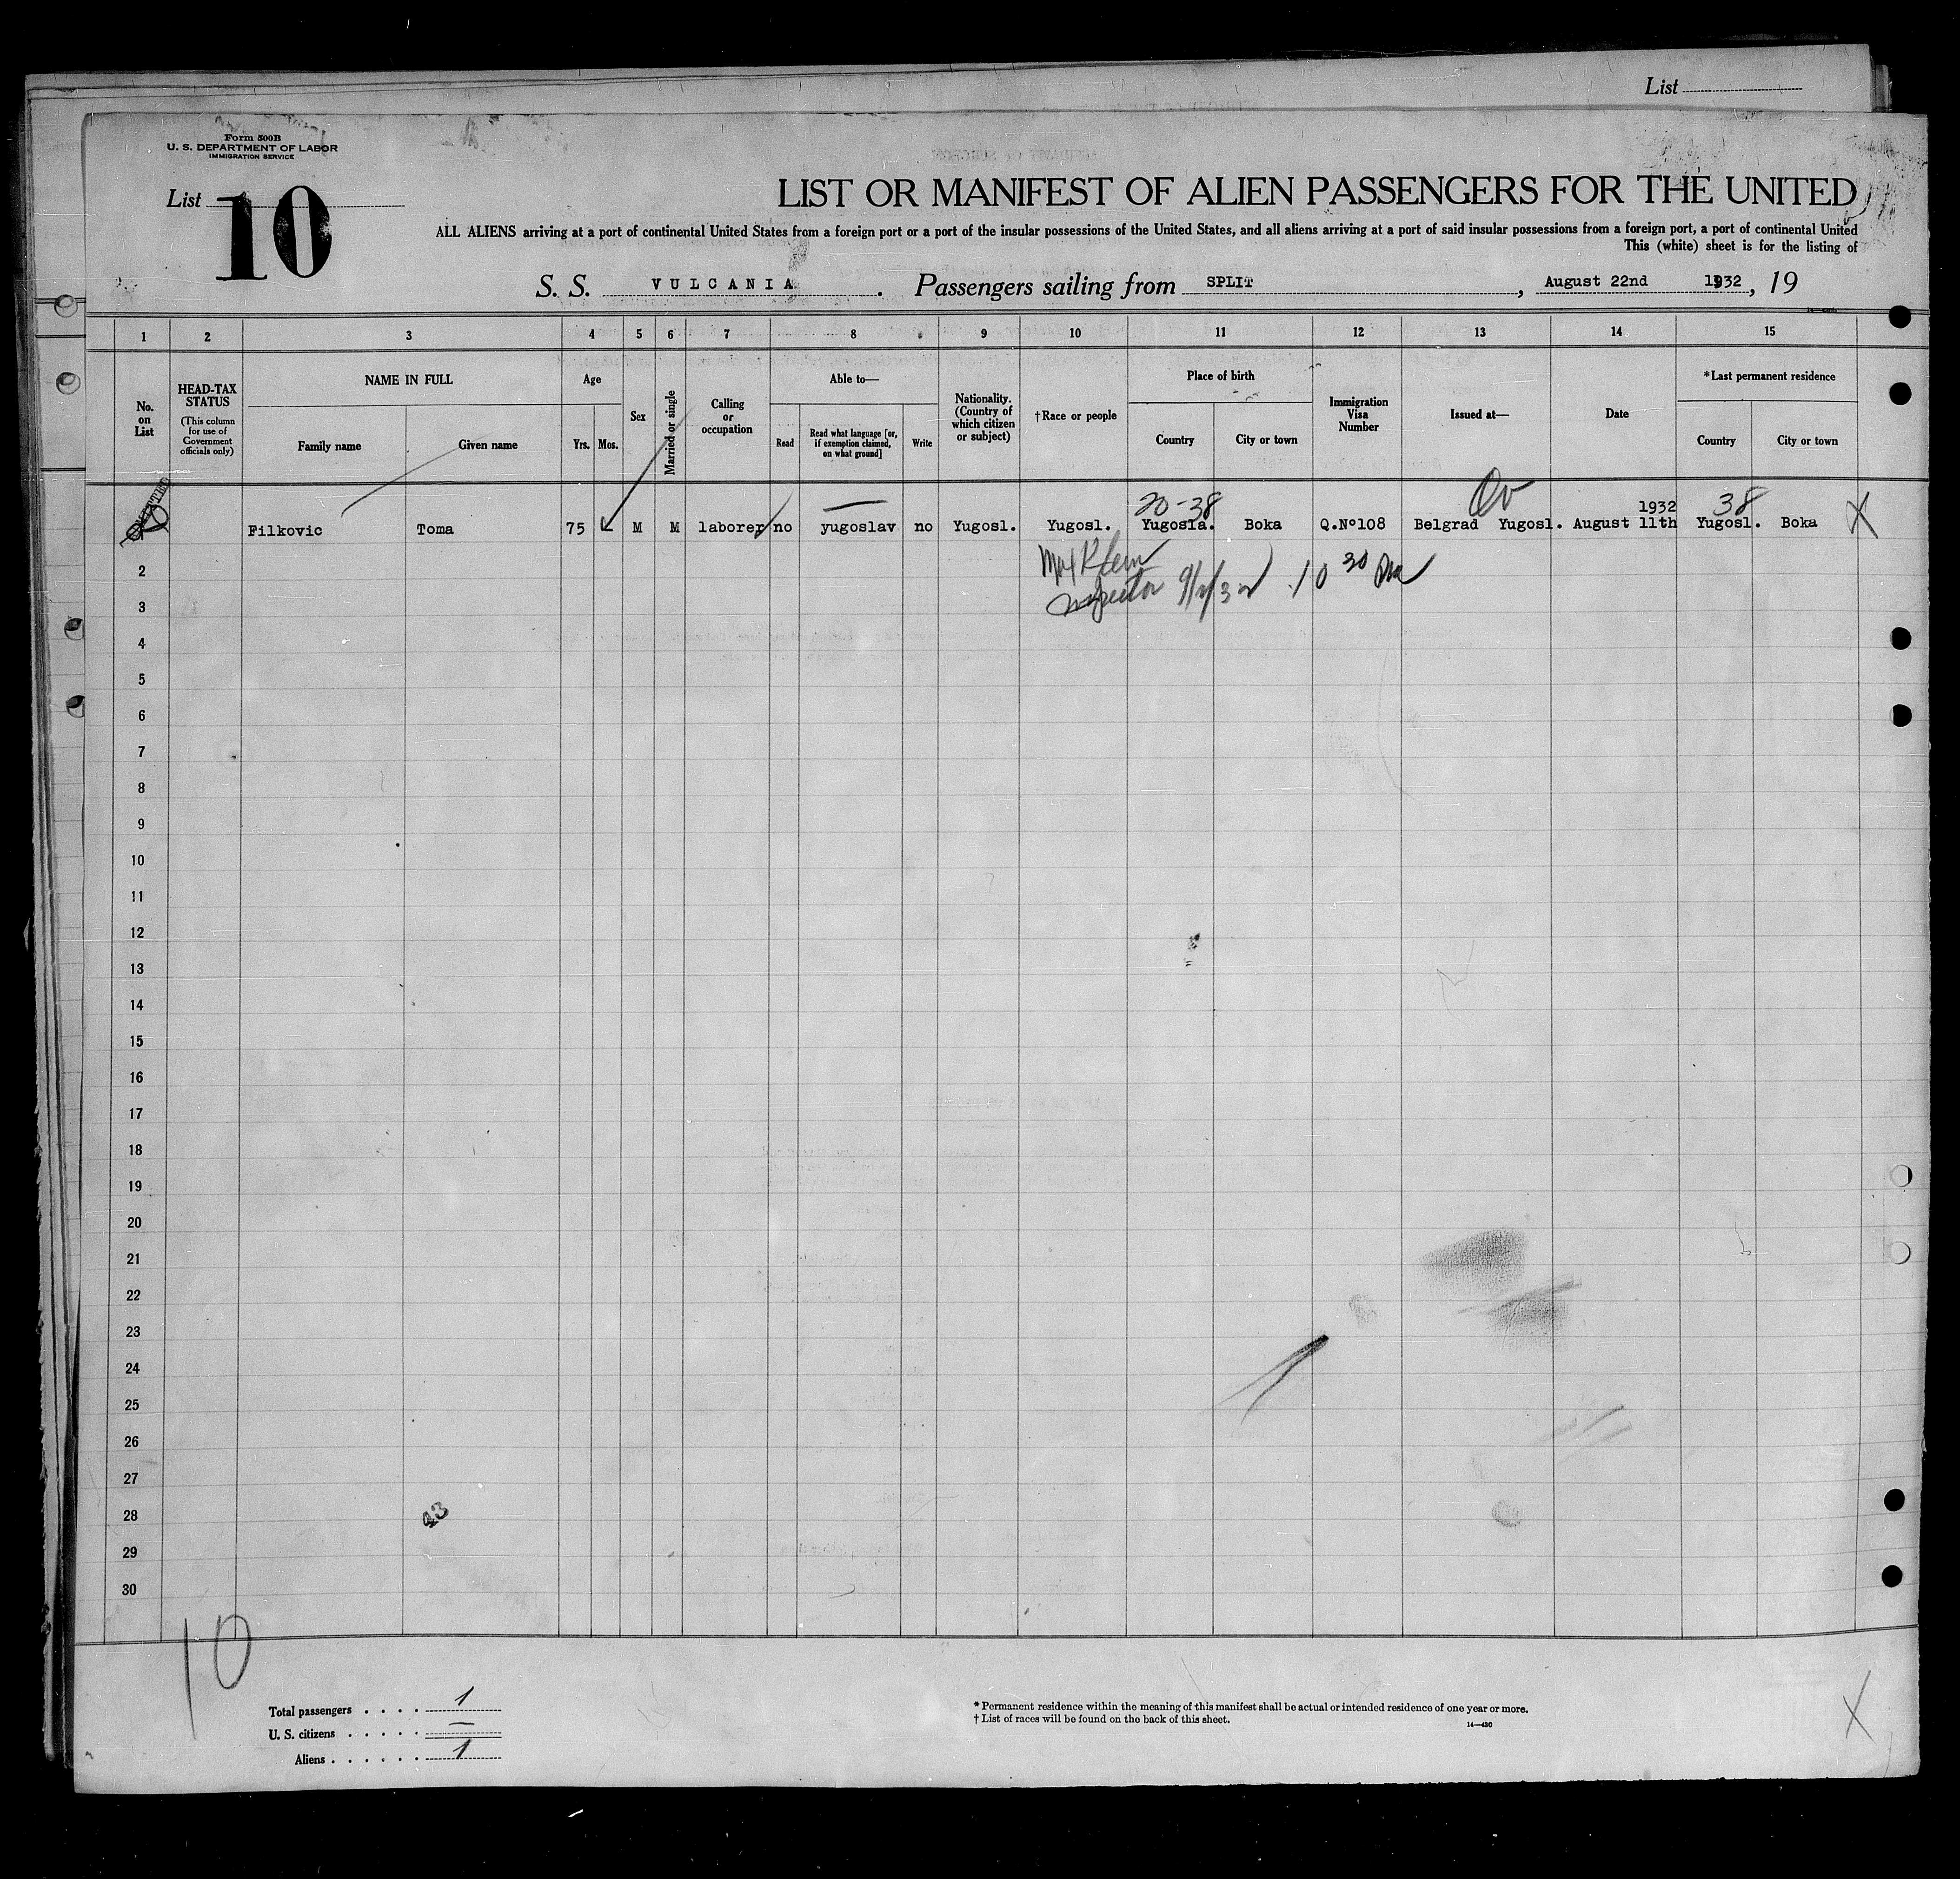 List
Form 500B
U. S. DEPARTMENT OF LABOR
IMMIGRATION SERVICE
List 10
LIST OR MANIFEST OF ALIEN PASSENGERS FOR THE UNITED
ALL ALIENS arriving at a port of continental United States from a foreign port or a port of the insular possessions of the United States, and all aliens arriving at a port of said insular possessions from a foreign port, a port of continental United
This (white) sheet is for the listing of
S. S. VULCANIA. Passengers sailing from SPLIT, August 22nd 1932, 19
1 2 3 4 5 6 7 8 9 10 11 12 13 14 15
No. on List
HEAD-TAX STATUS
(This column for use of Government officials only)
NAME IN FULL
Family name Given name
Age
Yrs. Mos.
Sex
Married or single
Calling or occupation
Able to—
Read
Read what language [or, if exemption claimed, on what ground]
Write
Nationality. (Country of which citizen or subject)
†Race or people
Place of birth
Country City or town
Immigration Visa Number
Issued at—
Date
*Last permanent residence
Country City or town
20-38 1932 38
Filkovic Toma 75 M M laborer no yugoslav no Yugosl. Yugosl. Yugosla. Boka Q.Nº108 Belgrad Yugosl. August 11th Yugosl. Boka X
Max Klein
2
Inspector 10 30
3
4
5
6
7
8
9
10
11
12
13
14
15
16
17
18
19
20
21
22
23
24
25
26
27
28
29
30
10
Total passengers . . . . 1
U. S. citizens . . . . . —
Aliens . . . . . . 1
* Permanent residence within the meaning of this manifest shall be actual or intended residence of one year or more.
† List of races will be found on the back of this sheet.
14—430
X